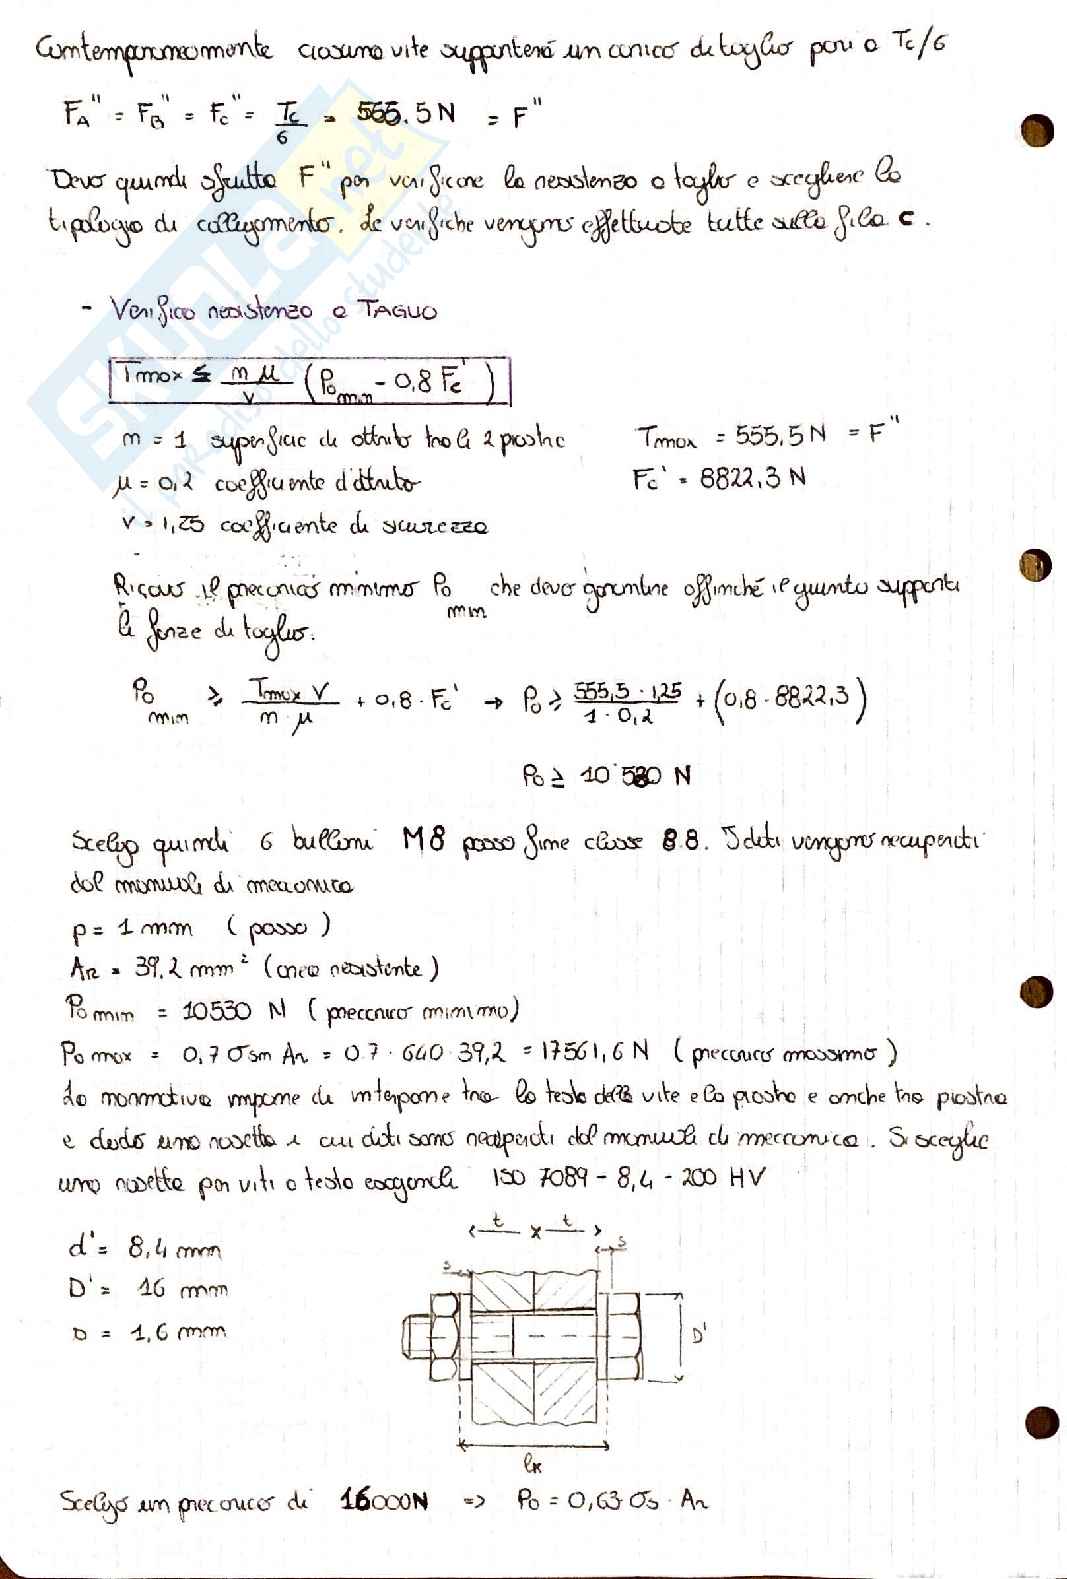 Contemporaneamente ciascuna vite supporterà un carico di taglio pari a Tc/6
FA" = FB" = Fc" = Tc/6 = 555.5 N = F"
Devo quindi sfrutta F" per verificare la resistenza a taglio e scegliere la
tipologia di collegamento. Le verifiche vengono effettuate tutte sulla fila C.
- Verifica resistenza a TAGLIO
Tmax ≤ m μ / v (Po min - 0,8 Fc')
m = 1 superficie di attrito tra le 2 piastre Tmax = 555,5 N = F"
μ = 0,2 coefficiente d'attrito Fc' = 8822,3 N
v = 1,25 coefficiente di sicurezza
Ricavo il precarico minimo Po min che devo garantire affinché il giunto supporti
le forze di taglio.
Po min ≥ Tmax v / m · μ + 0,8 · Fc' → Po ≥ 555,5 · 1,25 / 1 · 0,2 + (0,8 · 8822,3)
Po ≥ 10530 N
Scelgo quindi 6 bulloni M8 passo fine classe 8.8. I dati vengono recuperati
dal manuale di meccanica
p = 1 mm (passo)
Ar = 39.2 mm² (area resistente)
Po min = 10530 N (precarico minimo)
Po max = 0,7 σsm Ar = 0.7 · 640 · 39,2 = 17561,6 N (precarico massimo)
La normativa impone di interporre tra la testa della vite e la piastra e anche tra piastra
e dado una rosetta i cui dati sono recuperati dal manuale di meccanica. Si sceglie
una rosetta per viti a testa esagonale ISO 7089 - 8,4 - 200 HV
t x t
s
s
d' = 8,4 mm
D' = 16 mm
s = 1,6 mm
D'
lk
Scelgo un precarico di 16000N => Po = 0,63 σs · Ar
SKUOLA.net
il paradiso dello studente